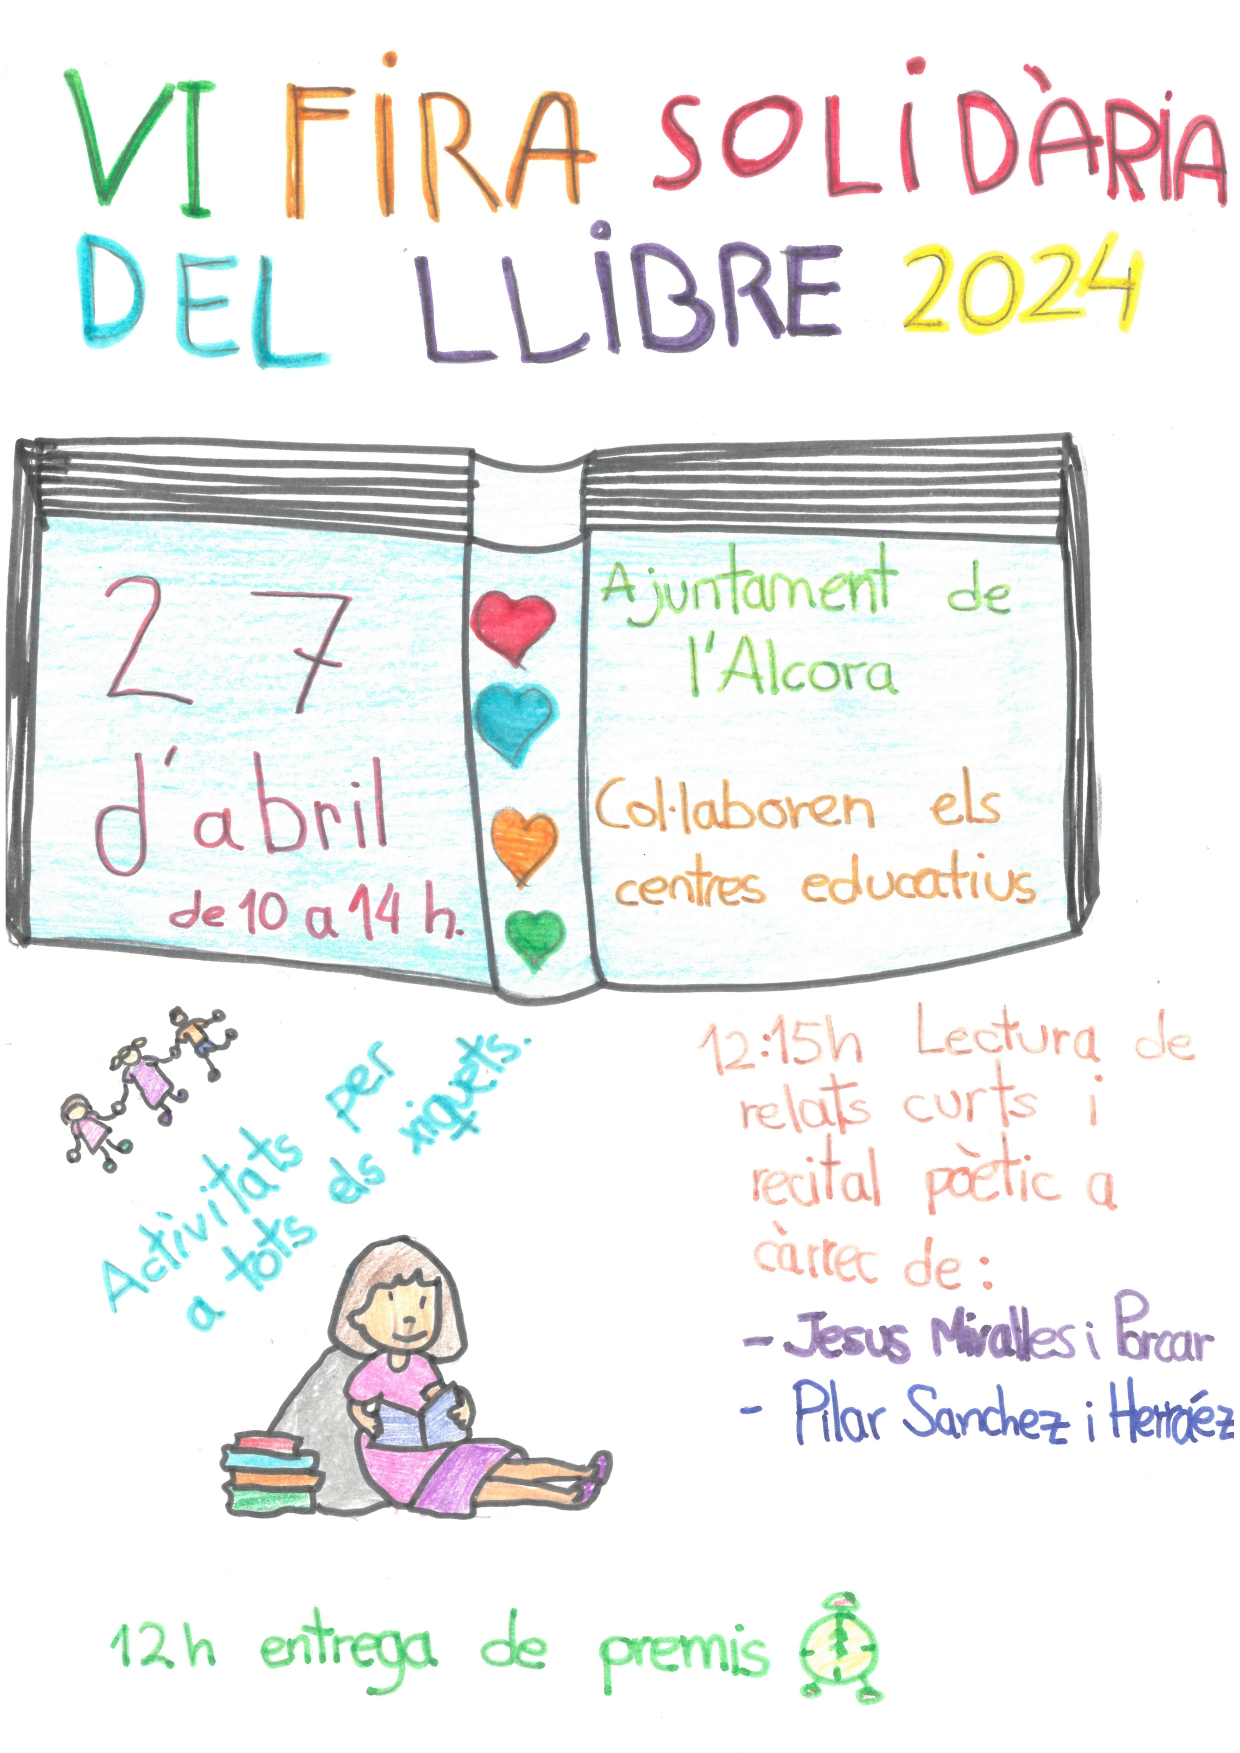 VI FiRA SOLiDÀRiA
DEL LLiBRE 2024
27
d'abril
de 10 a 14 h.
Ajuntament de
l'Alcora
Col·laboren els
centres educatius
Activitats per
a tots els xiquets.
12:15h Lectura de
relats curts i
recital poètic a
càrrec de:
- Jesus Miralles i Porcar
- Pilar Sanchez i Herráez
12h entrega de premis